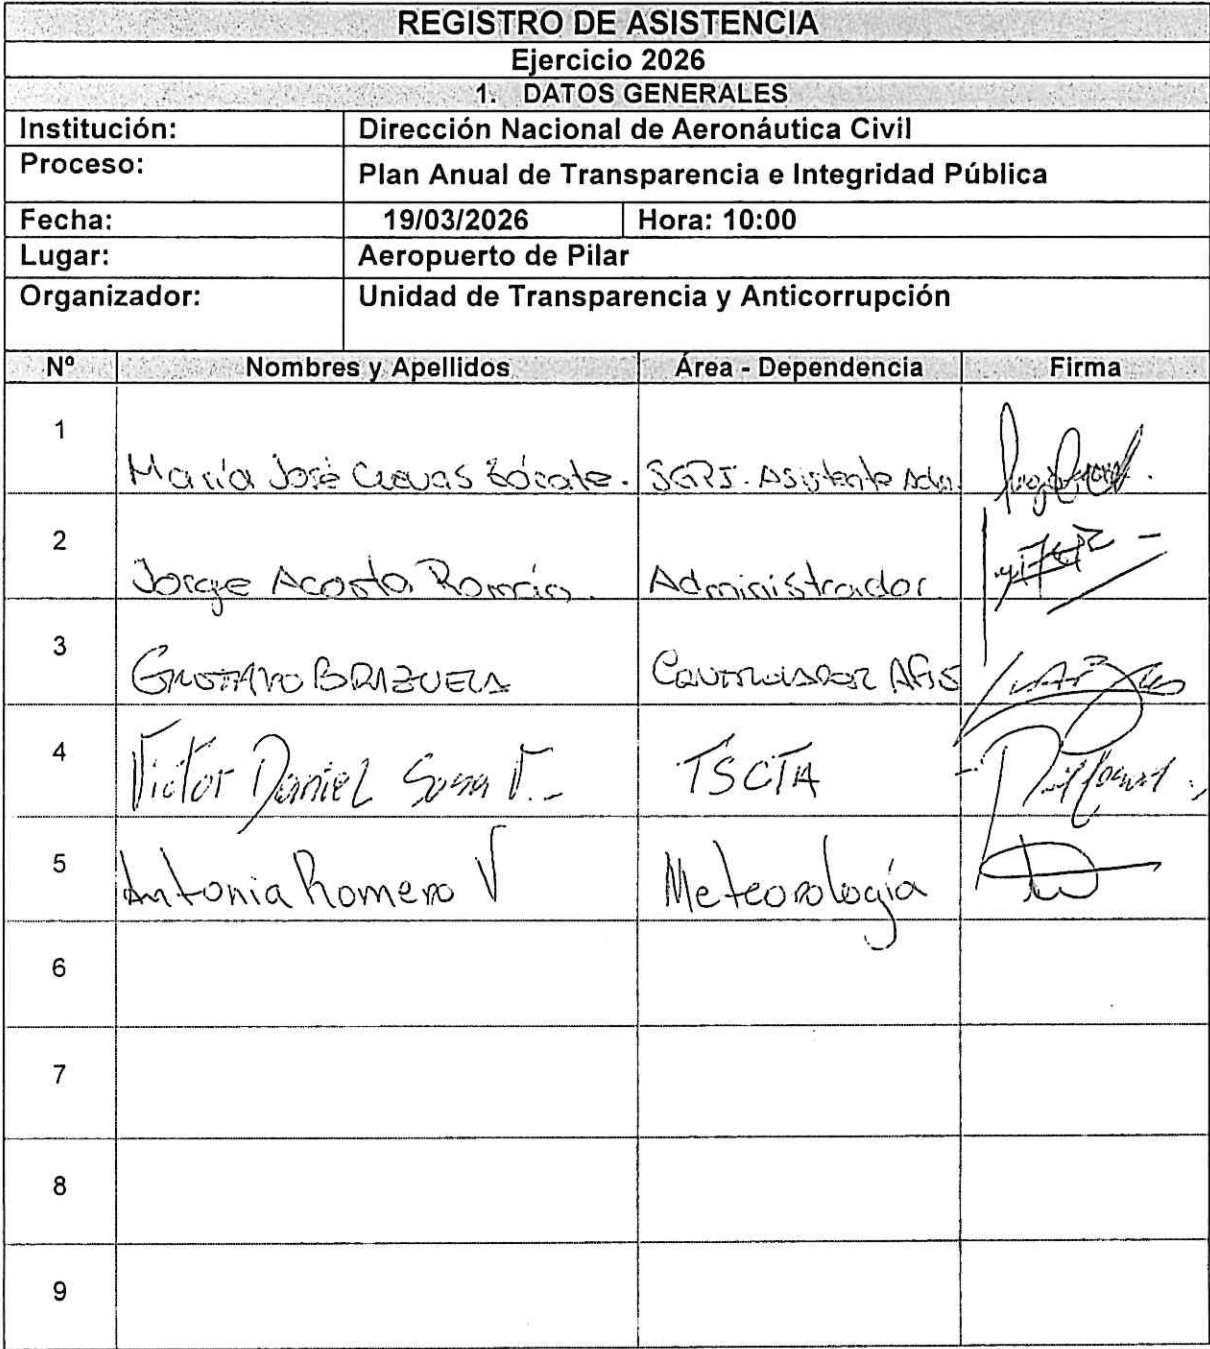 REGISTRO DE ASISTENCIA
Ejercicio 2026
1. DATOS GENERALES
Institución: Dirección Nacional de Aeronáutica Civil
Proceso: Plan Anual de Transparencia e Integridad Pública
Fecha: 19/03/2026 Hora: 10:00
Lugar: Aeropuerto de Pilar
Organizador: Unidad de Transparencia y Anticorrupción
Nº Nombres y Apellidos Área - Dependencia Firma
1 María José Cuevas Asistente Adm.
2 Jorge Acosta Román. Administrador.
3 GUSTAVO BRIZUELA CONTROLADOR AFIS
4 Victor Daniel Sosa V. TSCTA
5 Antonia Romero V Meteorología
6
7
8
9